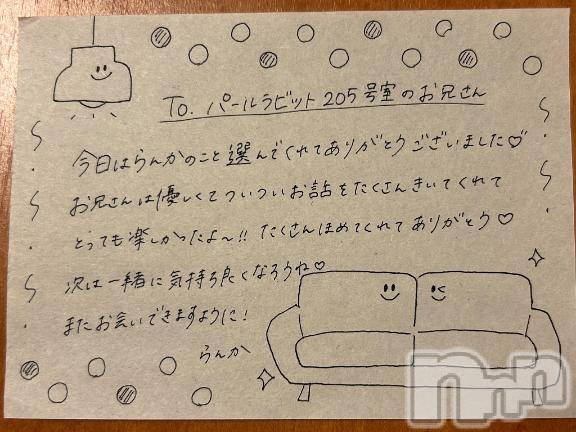 To. パールラビット205号室のお兄さん
今日はらんかのこと選んでくれてありがとうございました♡
お兄さんは優しくてついついお話をたくさんきいてくれて
とっても楽しかったよ〜!! たくさんほめてくれてありがとう♡
次は一緒に気持ち良くなろうね♡
またお会いできますように!
らんか